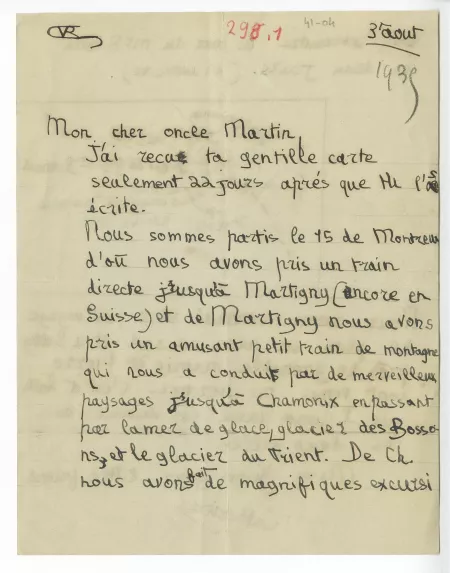 298.1
41-04
3 aout
1939
Mon cher oncle Martin,
J'ai recue ta gentille carte
seulement 22 jours aprés que tu l'as
écrite.
Nous sommes partis le 15 de Montreux
d'où nous avons pris un train
directe jusqu'à Martigny (encore en
Suisse) et de Martigny nous avons
pris un amusant petit train de montagne
qui nous a conduit par de merveilleux
paysages jusqu'à Chamonix en passant
par la mer de glace, glacier des Bosso-
ns, et le glacier du Trient. De Ch.
nous avons fait de magnifiques excursi